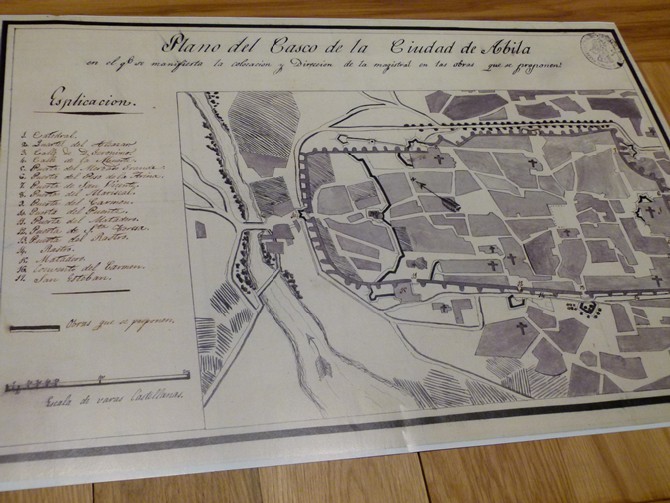 Plano del Casco de la Ciudad de Abila
en el qe. se manifiesta la colocacion y Direccion de la magistral en las obras que se proponen.
Esplicacion.
1. Catedral.
2. del Alcazar
3. Calle
4. Calle de la Muerte
5. Puerta del
6. Puerta del Peso de la Arina
7. Puerta de San Vicente
8. Puerta del Mariscal
9. Puerta del Carmen
10. Puerta del Puente
11. Puerta del Matadero
12. Puerta de Sta. Teresa
13. Puerta del Rastro
14. Rastro.
15. Matadero
16. Convento del Carmen.
17. San Esteban.
Obras que se proponen.
Escala de varas Castellanas.